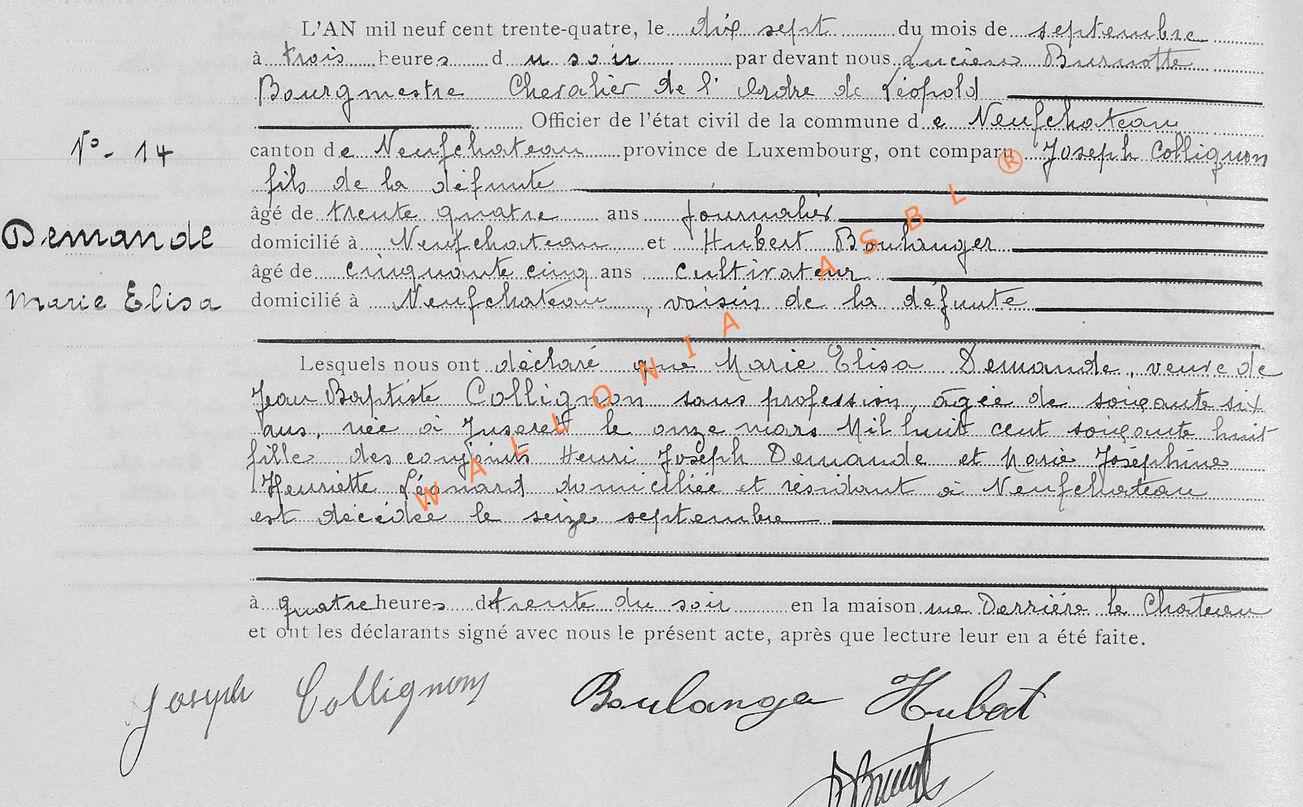 L'AN mil neuf cent trente-quatre, le dix sept du mois de septembre
à trois heures du soir par devant nous, Lucien Burnotte
Bourgmestre Chevalier de l'Ordre de Léopold
Officier de l'état civil de la commune de Neufchateau
N° - 14
canton de Neufchateau province de Luxembourg, ont comparu Joseph Collignon
fils de la défunte
âgé de trente quatre ans journalier
Demande
domicilié à Neufchateau et Hubert Boulanger
âgé de cinquante cinq ans cultivateur
Marie Elisa
domicilié à Neufchateau, voisin de la défunte
Lesquels nous ont déclaré que Marie Elisa Demande, veuve de
Jean Baptiste Collignon sans profession, âgée de soixante six
ans, née à Juseret le onze mars Mil huit cent soixante huit
fille des conjoints Henri Joseph Demande et Marie Josephine
Henriette Léonard domiciliée et résidant à Neufchateau
est décédée le seize septembre
à quatre heures trente du soir en la maison rue Derrière le Chateau
et ont les déclarants signé avec nous le présent acte, après que lecture leur en a été faite.
Joseph Collignon Boulanger Hubert
WALLONIA ASBL ®